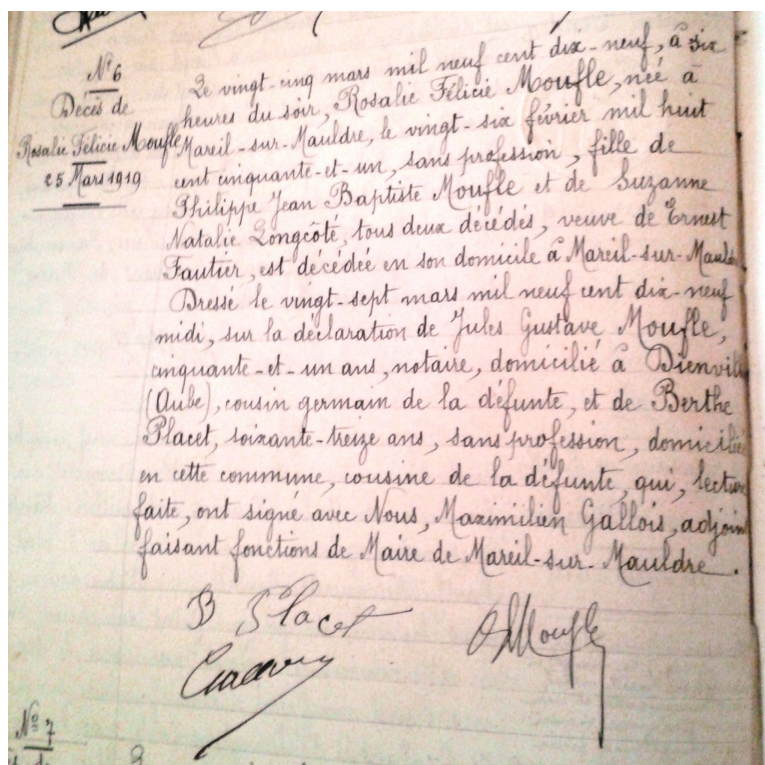 N° 6
Décès de
Rosalie Félicie Moufle
25 Mars 1919
Le vingt-cinq mars mil neuf cent dix-neuf, à six
heures du soir, Rosalie Félicie Moufle, née à
Mareil-sur-Mauldre, le vingt-six février mil huit
cent cinquante-et-un, sans profession, fille de
Philippe Jean Baptiste Moufle et de Suzanne
Natalie Longcôté, tous deux décédés, veuve de Ernest
Fautier, est décédée en son domicile à Mareil-sur-Mauld
Dressé le vingt-sept mars mil neuf cent dix-neuf
midi, sur la déclaration de Jules Gustave Moufle,
cinquante-et-un ans, notaire, domicilié à Dienvill
(Aube), cousin germain de la défunte, et de Berthe
Placet, soixante-treize ans, sans profession, domicilié
en cette commune, cousine de la défunte, qui, lecture
faite, ont signé avec Nous, Maximilien Gallois, adjoin
faisant fonctions de Maire de Mareil-sur-Mauldre.
B Placet
Moufle
N° 7